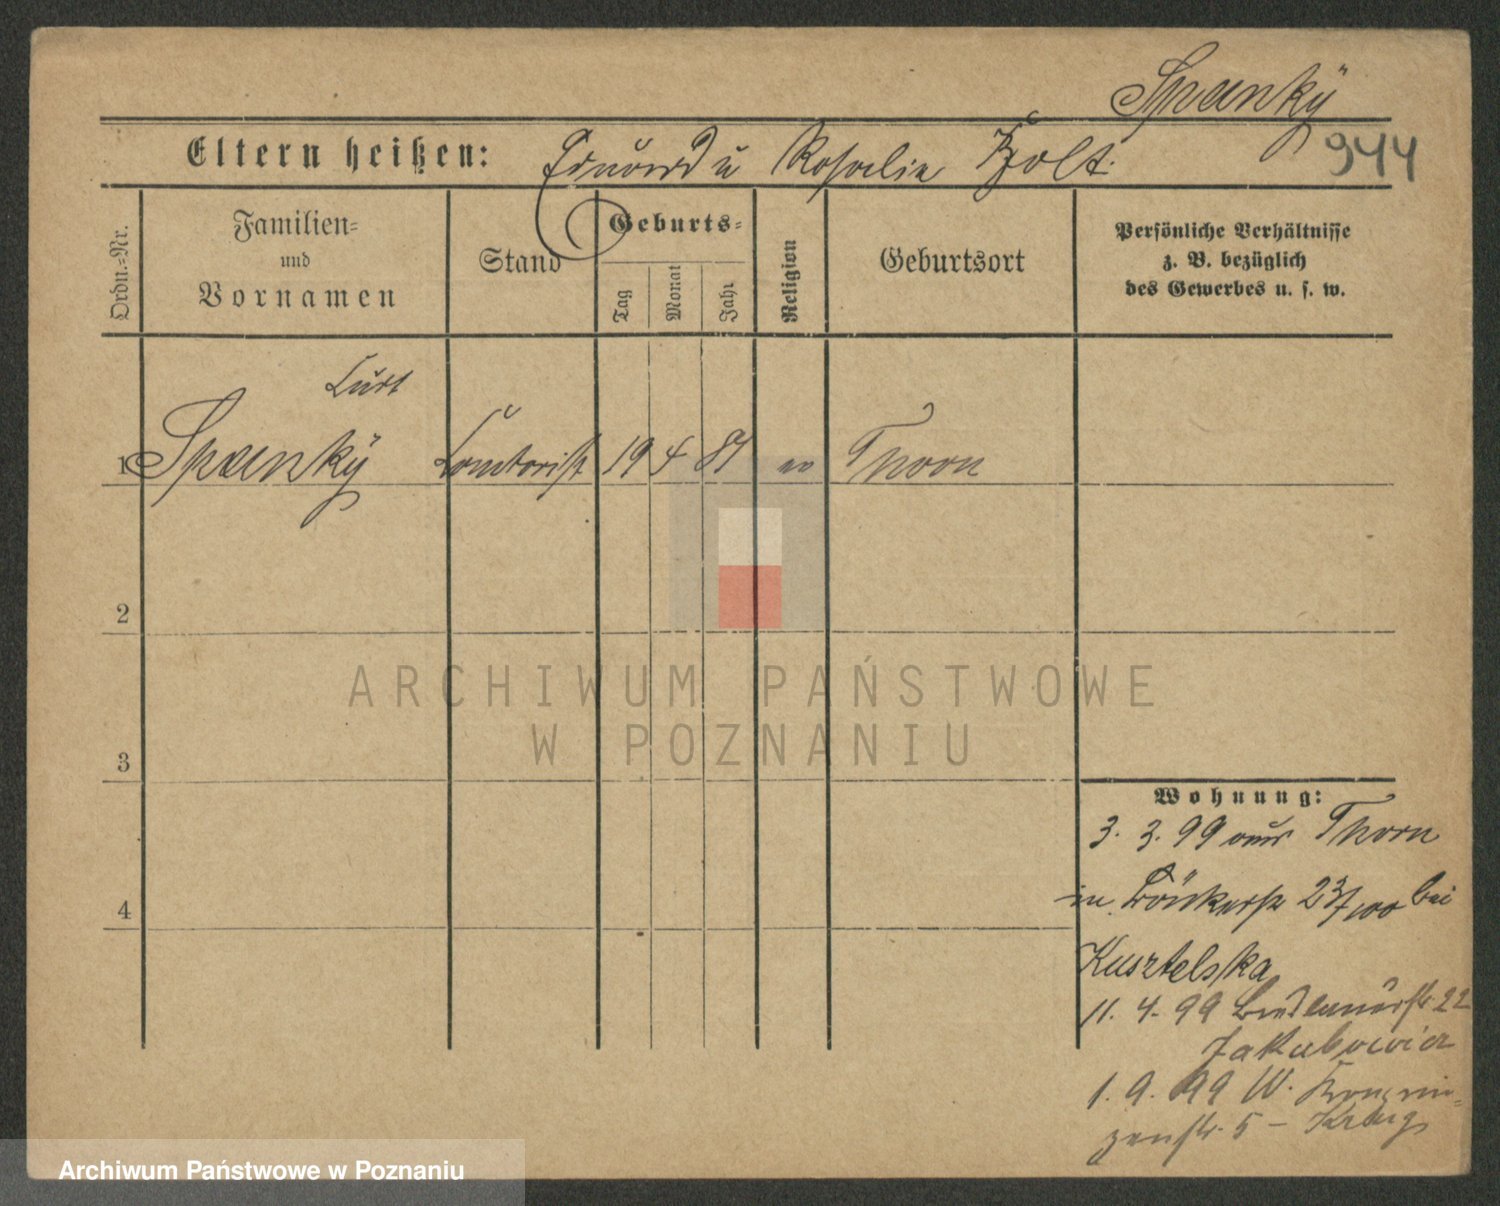 Spanky
944
Eltern heißen: Eduard u Rosalie
Ordn.-Nr.
Familien-
und
Vornamen
Stand
Geburts-
Tag
Monat
Jahr
Religion
Geburtsort
Persönliche Verhältnisse
z. B. bezüglich
des Gewerbes u. s. w.
Curt
1 Spanky Comtorist 19 4 81 ev Thorn
2
ARCHIWUM PAŃSTWOWE
W POZNANIU
3
Wohnung:
3. 3. 99 aus Thorn
in Bäckerstr 23/100 bei
4
Kusztelska
11. 4. 99 22
Jakubowicz
1. 9. 99 W. Kronprin-
zenstr. 5 - Krug
Archiwum Państwowe w Poznaniu